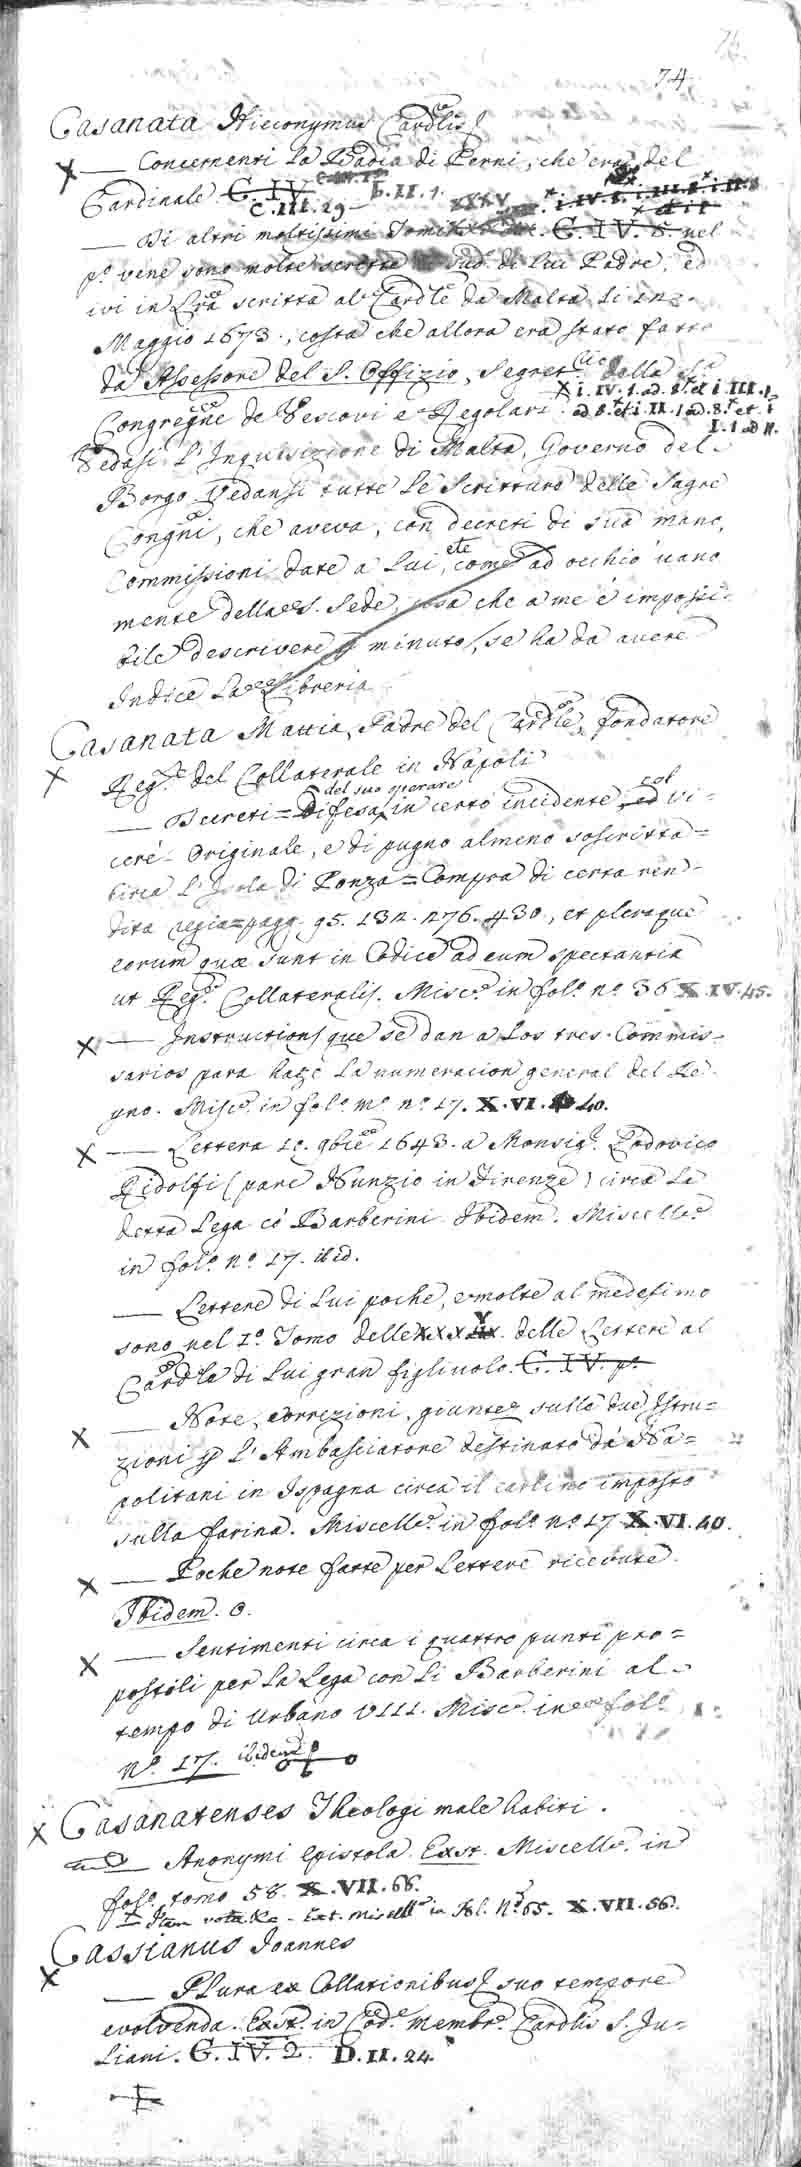 74
74
Casanata Hieronymus Cardlis
X — Concernenti la Badia di Ferni, che era del
Cardinale C. IV. C.III.29 b.II.1. XXXV
— Di altri moltissimi Tomi C. IV. 8. nel
pº vene sono molte scritte di lui Padre, ed
ivi in Lrã scritta al Cardle da Malta li
Maggio 1673., costa che allora era stato fatto
da Assessore del S. Offizio, Segret. della Sª
X i. IV. 1. ad. 8. et i. III. 1.
Congregne de Vescovi e Regolari. ad 8. et i. II. 1 ad. 8. et. i
I. 1 ad 11.
Vedasi l'Inquisizione di Malta, Governo del
Borgo Vedansi tutte le Scritture delle Sagre
Congni, che aveva, con decreti di sua mano,
Commissioni date a lui, etc come ad occhio vano
mente della S. Sede, cosa che a me é impossi-
bile descrivere minuto, se ha da avere
Indice la Libreria
Casanata Mattia, Padre del Cardle, fondatore
X Regte del Collaterale in Napoli
del suo operare
— Decreti = Difesa in certo incidente, col vi-
ceré - Originale, e di pugno almeno soscritta =
circa l'Isola di Ponza = Compra di certa ren-
dita regia = pagg. 95. 132. 276. 430., et pleraque
eorum quæ sunt in Codice ad eum spectantia
ut Reg. Collateralis. Misc. in folº nº 36 X. IV. 45.
X — Instructions que se dan a los tres Commis-
sarios para haze la numeracion general del Re-
gno. Misc. in folº mº nº 17. X. VI. 40.
X — Lettera 1c. 9bre 1643. a Monsigr. Lodovico
Ridolfi (pare Nunzio in Firenze) circa la
detta Lega có Barberini Ibidem. Miscell.
in folº nº 17. ibid.
— Lettere di lui poche, e molte al medesimo
sono nel 1º Tomo delle XXXV. delle Lettere al
Cardle di lui gran figliuolo. C. IV. pº
X — Note, correzioni, giunte sulle due Istru-
zioni p l'Ambasciatore destinato da Na-
politani in Ispagna circa il carlino imposto
sulla farina. Miscell. in folº nº 17 X. VI. 40.
X — Poche note fatte per Lettere ricevute
Ibidem. o.
X — Sentimenti circa i quattro punti pro-
postoli per la Lega con li Barberini al
tempo di Urbano VIII. Misc. in folº
nº 17. ibidem
X Casanatenses Theologi male habiti.
— Anonymi epistola. Ext. Miscell. in
folº tomo 58. X. VII. 66.
Item Ext. Miscell in fol. Nº 65. X. VII. 56.
Cassianus Joannes
X — Plura ex Collationibus suo tempore
evolvenda. Ext. in Cod. membr. Cardlis S. Ju-
liani. C. IV. 2. D. II. 24.